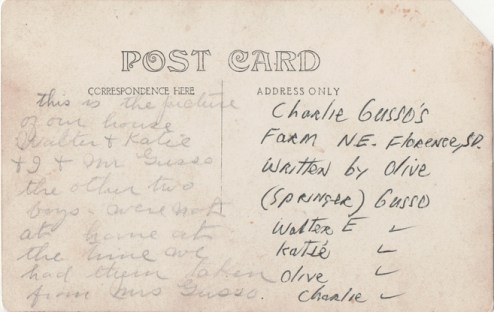 POST CARD
CORRESPONDENCE HERE
this is the picture
of our house
Walter & Katie
& I & Mr Gusso
the other two
boys were not
at home at
the time we
had them taken
from Mrs Gusso.
ADDRESS ONLY
Charlie Gusso's
Farm NE. Florence, SD.
Written by Olive
(Springer) Gusso
Walter E ✓
Katie ✓
Olive ✓
Charlie ✓